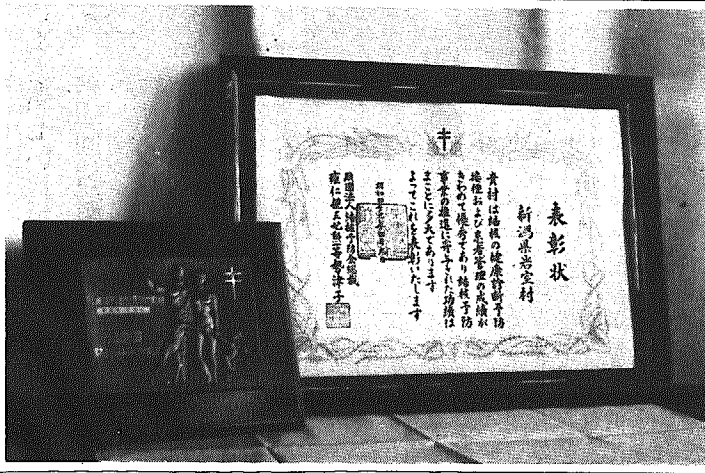 表彰状
新潟県岩室村
貴村は結核の健康診断予防
接種および患者管理の成績が
きわめて優秀であり結核予防
事業の推進に寄与された功績は
まことに多大であります
よってこれを表彰いたします
財団法人結核予防会総裁
雍仁親王妃勲一等勢津子